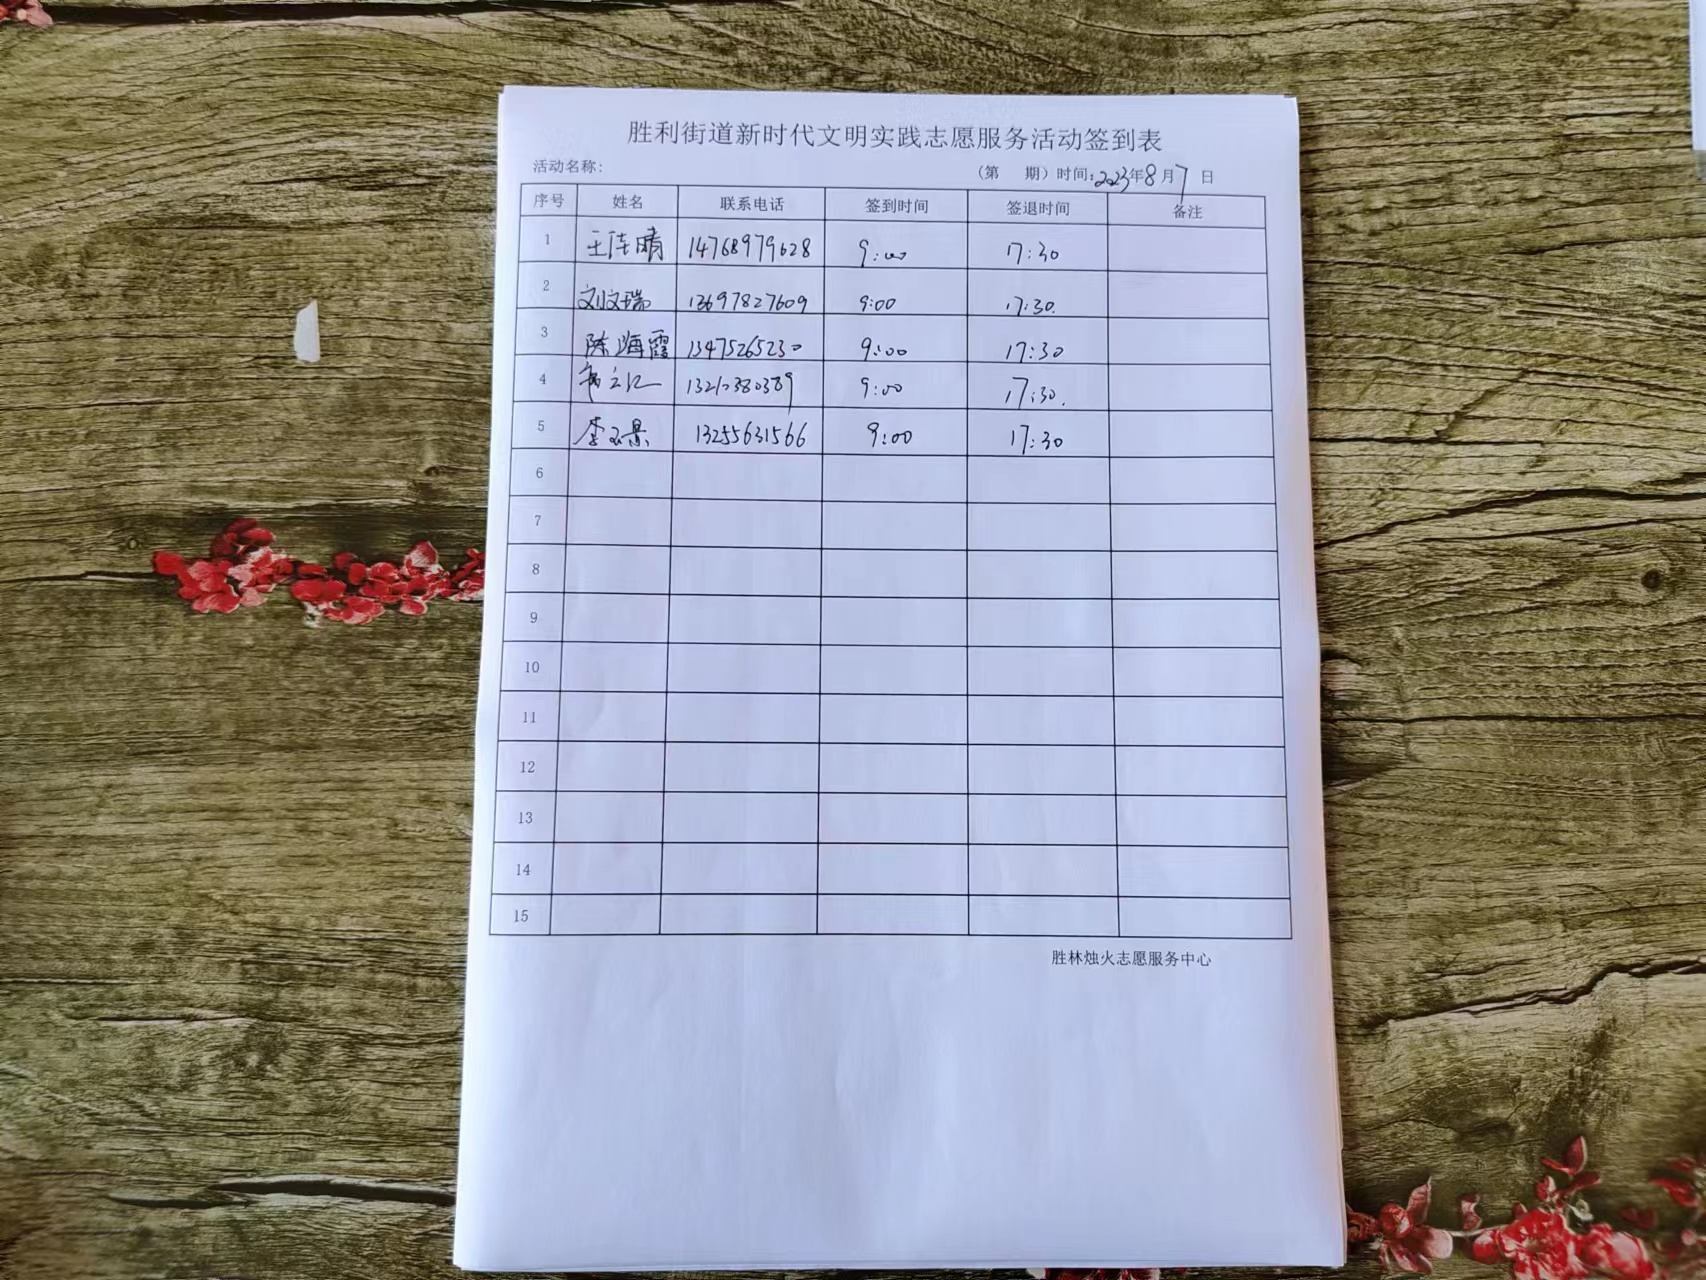 胜利街道新时代文明实践志愿服务活动签到表
活动名称: (第 期) 时间:2023年8月7日
序号 姓名 联系电话 签到时间 签退时间 备注
1 王佳晴 14768979628 9:00 17:30
2 刘文瑞 13697827609 9:00 17:30.
3 陈海霞 13475265230 9:00 17:30
4 9:00 17:30.
5 李玉景 13255631566 9:00 17:30
6
7
8
9
10
11
12
13
14
15
胜林烛火志愿服务中心